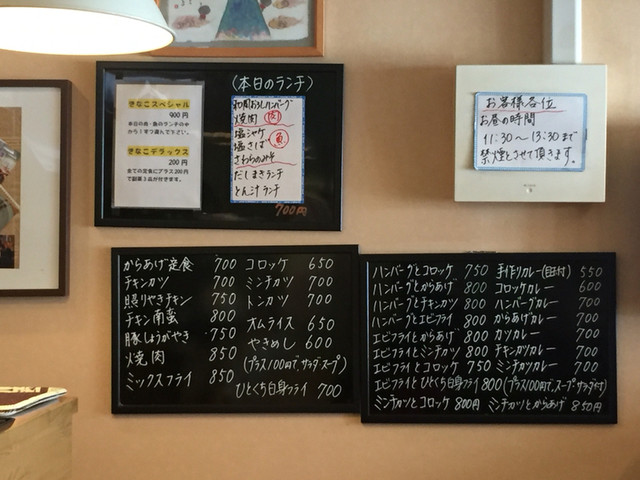 きなこスペシャル
900円
本日の肉・魚のランチの中
から1をつ選んで下さい。
きなこデラックス
200円
全ての定食にプラス200円
で副菜3品が付きます。
(本日のランチ)
和風おろしハンバーグ
焼肉 肉
塩シャケ
塩さば 魚
さわらのみそ
だしまきランチ
とん汁ランチ
700円
お客様各位
お昼の時間
11:30〜13:30まで
禁煙とさせて頂きます。
からあげ定食 700
チキンカツ 700
照りやきチキン 750
チキン南蛮 800
豚しょうがやき 750
焼肉 850
ミックスフライ 850
コロッケ 650
ミンチカツ 700
トンカツ 700
オムライス 650
やきめし 600
(プラス100円で、サラダ、スープ)
ひとくち白身フライ 700
ハンバーグとコロッケ 750
ハンバーグとからあげ 800
ハンバーグとチキンカツ 800
ハンバーグとエビフライ 800
エビフライとからあげ 800
エビフライとミンチカツ 800
エビフライとコロッケ 750
エビフライとひとくち白身フライ 800
ミンチカツとコロッケ 800円
手作りカレー 550
コロッケカレー 600
ハンバーグカレー 700
からあげカレー 700
カツカレー 700
チキンカツカレー 700
ミンチカツカレー 700
(プラス100円で、スープ、サラダ付)
ミンチカツとからあげ 850円